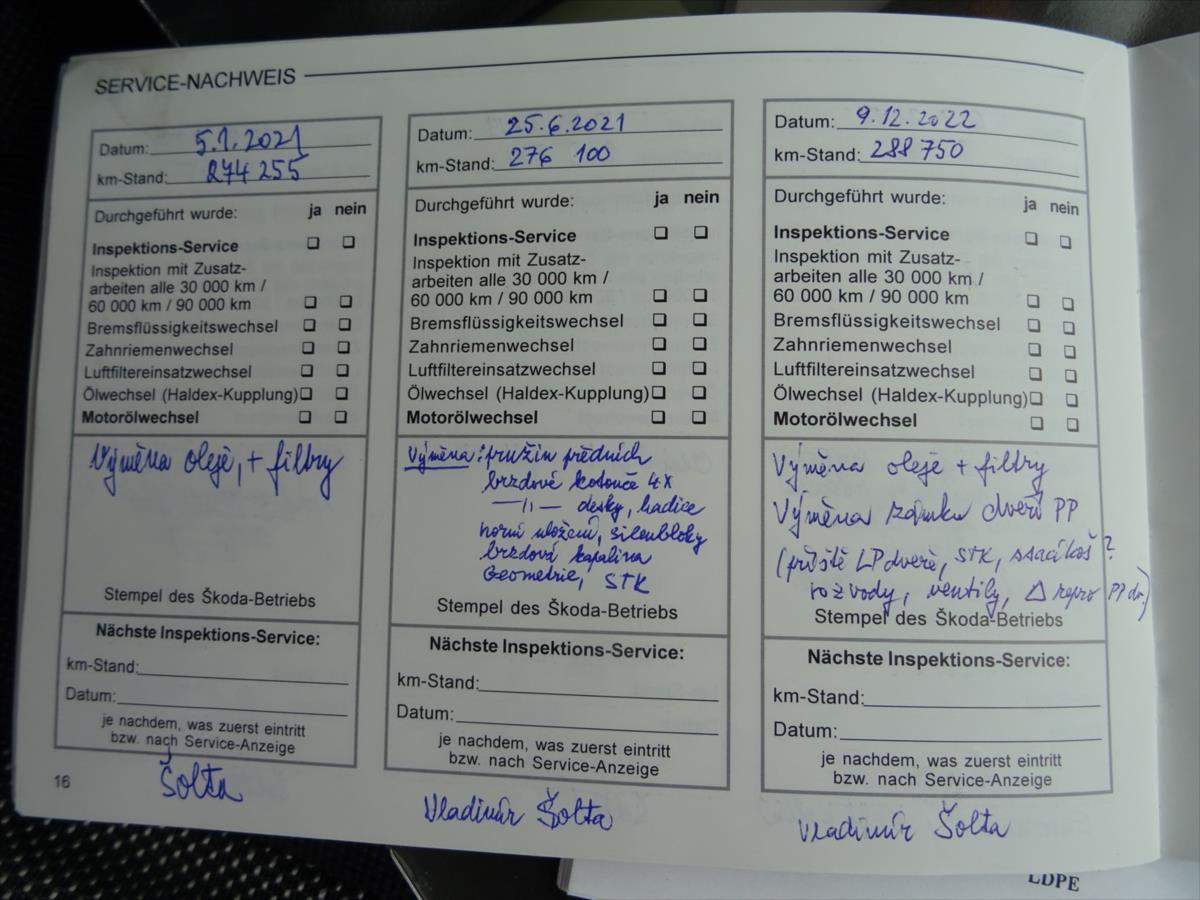 SERVICE-NACHWEIS
Datum: 5.1.2021
km-Stand: 274 255
Durchgeführt wurde: ja nein
Inspektions-Service ❑ ❑
Inspektion mit Zusatz-
arbeiten alle 30 000 km /
60 000 km / 90 000 km ❑ ❑
Bremsflüssigkeitswechsel ❑ ❑
Zahnriemenwechsel ❑ ❑
Luftfiltereinsatzwechsel ❑ ❑
Ölwechsel (Haldex-Kupplung) ❑ ❑
Motorölwechsel ❑ ❑
Výměna olejě, + filtry
Stempel des Škoda-Betriebs
Nächste Inspektions-Service:
km-Stand:
Datum:
je nachdem, was zuerst eintritt
bzw. nach Service-Anzeige
Šolta
16
Datum: 25.6.2021
km-Stand: 276 100
Durchgeführt wurde: ja nein
Inspektions-Service ❑ ❑
Inspektion mit Zusatz-
arbeiten alle 30 000 km /
60 000 km / 90 000 km ❑ ❑
Bremsflüssigkeitswechsel ❑ ❑
Zahnriemenwechsel ❑ ❑
Luftfiltereinsatzwechsel ❑ ❑
Ölwechsel (Haldex-Kupplung) ❑ ❑
Motorölwechsel ❑ ❑
Výměna: pružin předních
brzdové kotouče 4x
—〃— desky, hadice
horní uložení, silenbloky
brzdová kapalina
Geometrie, STK
Stempel des Škoda-Betriebs
Nächste Inspektions-Service:
km-Stand:
Datum:
je nachdem, was zuerst eintritt
bzw. nach Service-Anzeige
Vladimír Šolta
Datum: 9.12.2022
km-Stand: 288 750
Durchgeführt wurde: ja nein
Inspektions-Service ❑ ❑
Inspektion mit Zusatz-
arbeiten alle 30 000 km /
60 000 km / 90 000 km ❑ ❑
Bremsflüssigkeitswechsel ❑ ❑
Zahnriemenwechsel ❑ ❑
Luftfiltereinsatzwechsel ❑ ❑
Ölwechsel (Haldex-Kupplung) ❑ ❑
Motorölwechsel ❑ ❑
Výměna olejě + filtry
Výměna zámku dveří PP
(příště LP dveře, STK, ssací koš?
rozvody, ventily, △ repro PP dv.)
Stempel des Škoda-Betriebs
Nächste Inspektions-Service:
km-Stand:
Datum:
je nachdem, was zuerst eintritt
bzw. nach Service-Anzeige
Vladimír Šolta
LDPE